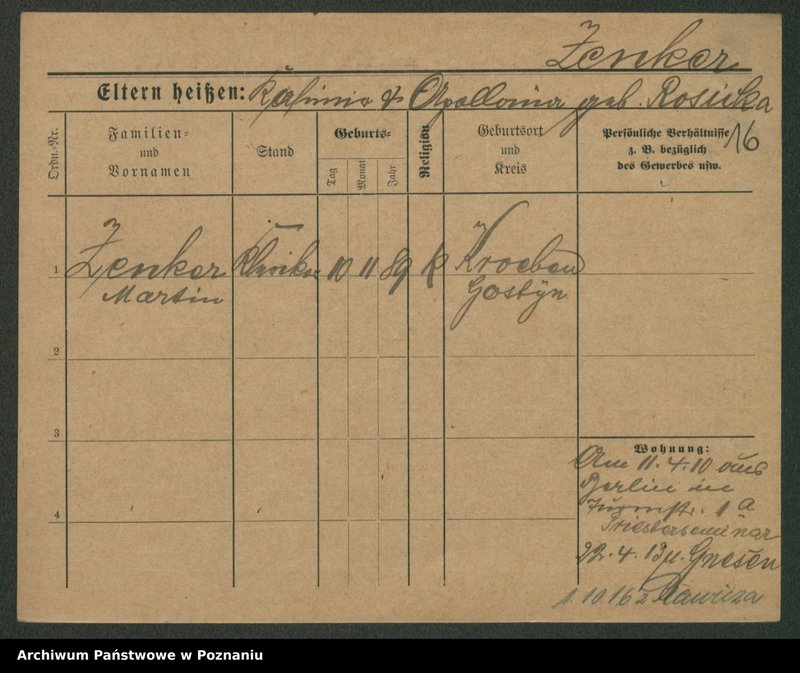 Zenker
Eltern heißen: Kasimir & Apollonia geb. Rosicka
16
Ordn.-Nr.
Familien- und Vornamen
Stand
Geburts-
Tag
Monat
Jahr
Religion
Geburtsort und Kreis
Persönliche Verhältnisse z. B. bezüglich des Gewerbes usw.
1 Zenker Kleriker 10 11 89 K Kroeben
Martin Gostyn
2
3
Wohnung:
Am 11.4.10 aus
Berlin in
1a
Priesterseminar
4
22.4.13 n. Gnesen
1.10.16
Archiwum Państwowe w Poznaniu